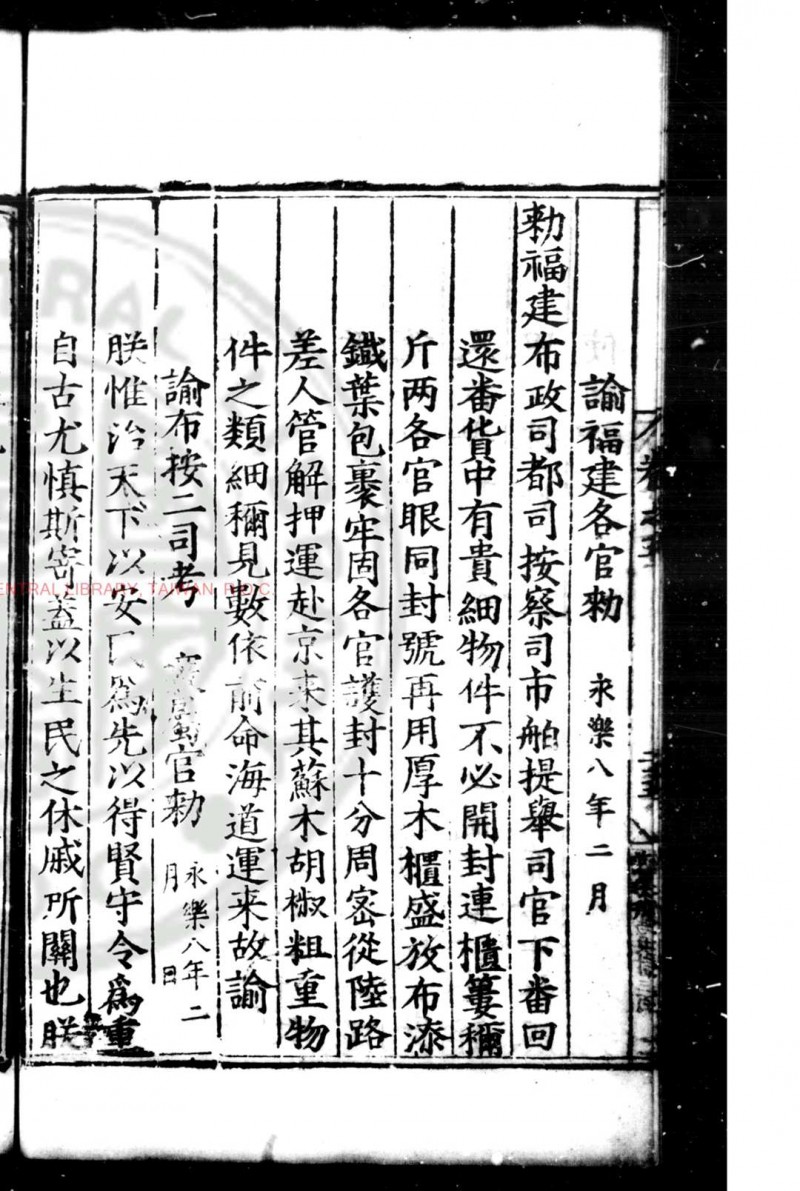 諭福建各官勑 永樂八年二月
勑福建布政司都司按察司市舶提舉司官下番回
還番貨中有貴細物件不必開封連櫃簍稱
斤两各官眼同封號再用厚木櫃盛放布漆
鐵葉包裹牢固各官護封十分周密從陸路
差人管解押運赴京来其蘇木胡椒粗重物
件之類細稱見數依前命海道運来故諭
諭布按二司考 官勑 永樂八年二月 日
朕惟治天下以安民爲先以得賢守令爲重
自古尤慎斯寄盖以生民之休戚所關也朕
CENTRAL LIBRARY, TAIWAN, R.O.C